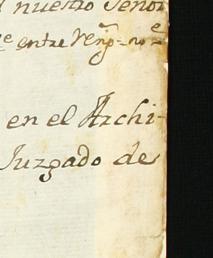 nuestro Señor
entre Reng.s = no =
en el Archi-
Juzgado de